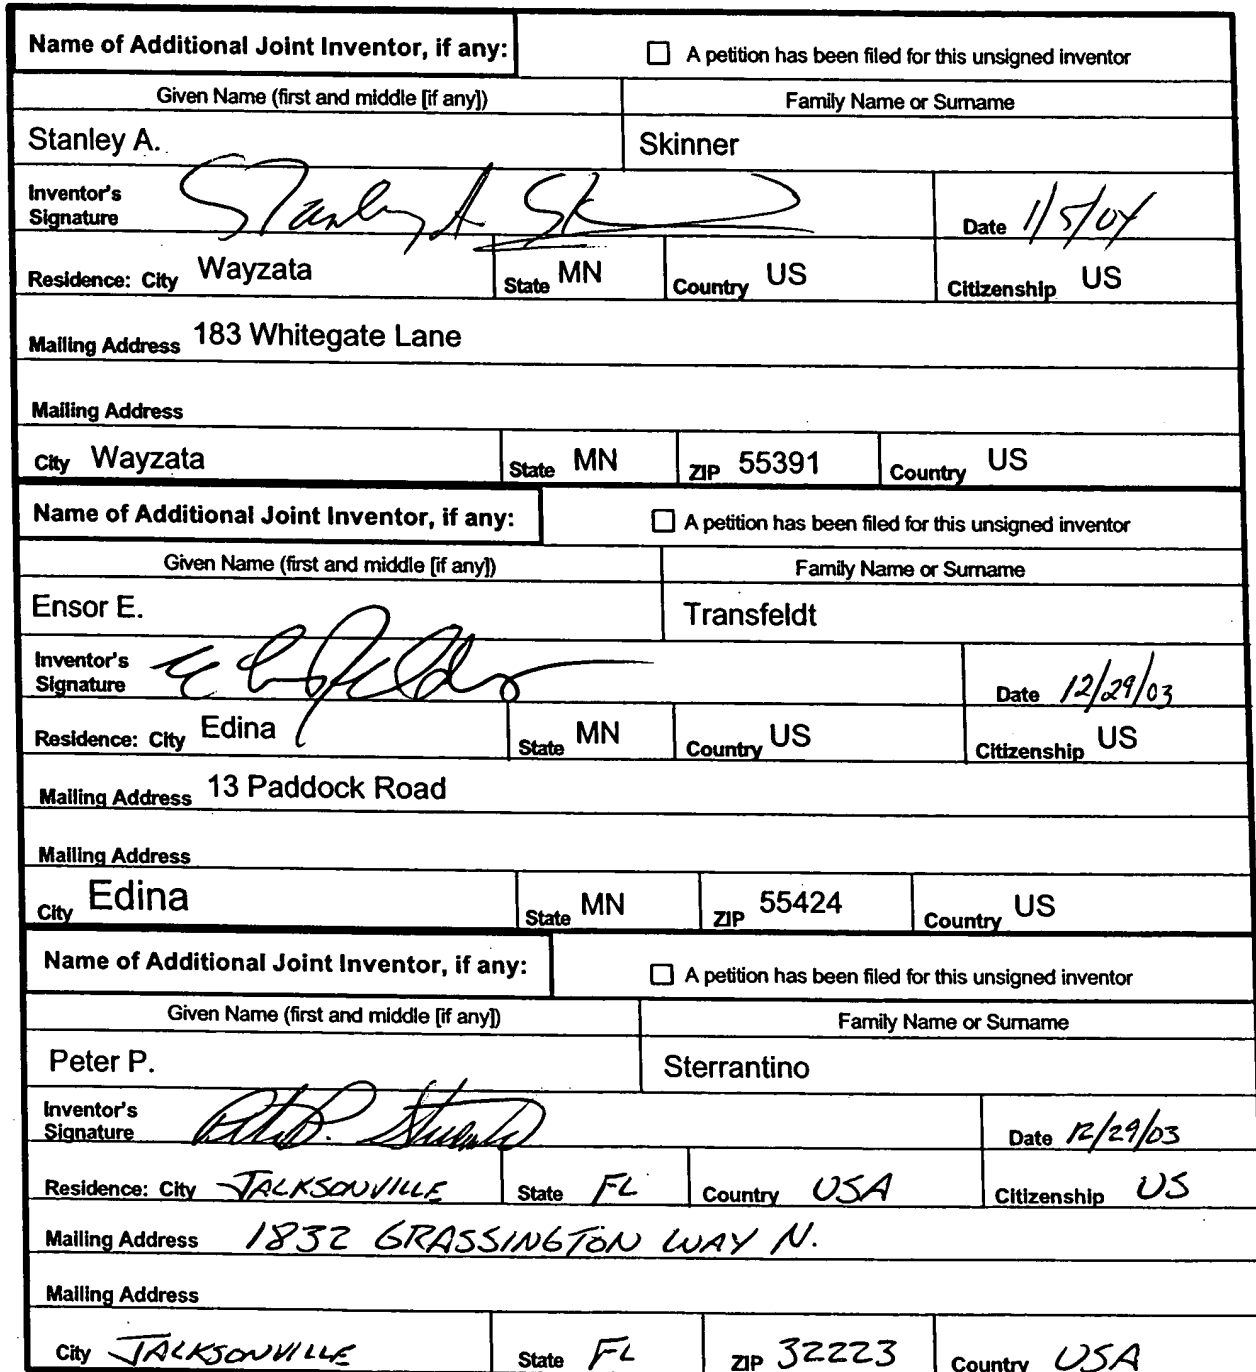 Name of Additional Joint Inventor, if any: A petition has been filed for this unsigned inventor
Given Name (first and middle [if any]) Family Name or Surname
Stanley A. Skinner
Inventor's Signature Stanley A Sk Date 1/5/04
Residence: City Wayzata State MN Country US Citizenship US
Mailing Address 183 Whitegate Lane
Mailing Address
City Wayzata State MN ZIP 55391 Country US
Name of Additional Joint Inventor, if any: A petition has been filed for this unsigned inventor
Given Name (first and middle [if any]) Family Name or Surname
Ensor E. Transfeldt
Inventor's Signature Date 12/29/03
Residence: City Edina State MN Country US Citizenship US
Mailing Address 13 Paddock Road
Mailing Address
City Edina State MN ZIP 55424 Country US
Name of Additional Joint Inventor, if any: A petition has been filed for this unsigned inventor
Given Name (first and middle [if any]) Family Name or Surname
Peter P. Sterrantino
Inventor's Signature Date 12/29/03
Residence: City JALKSONVILLE State FL Country USA Citizenship US
Mailing Address 1832 GRASSINGTON WAY N.
Mailing Address
City JALKSONVILLE State FL ZIP 32223 Country USA